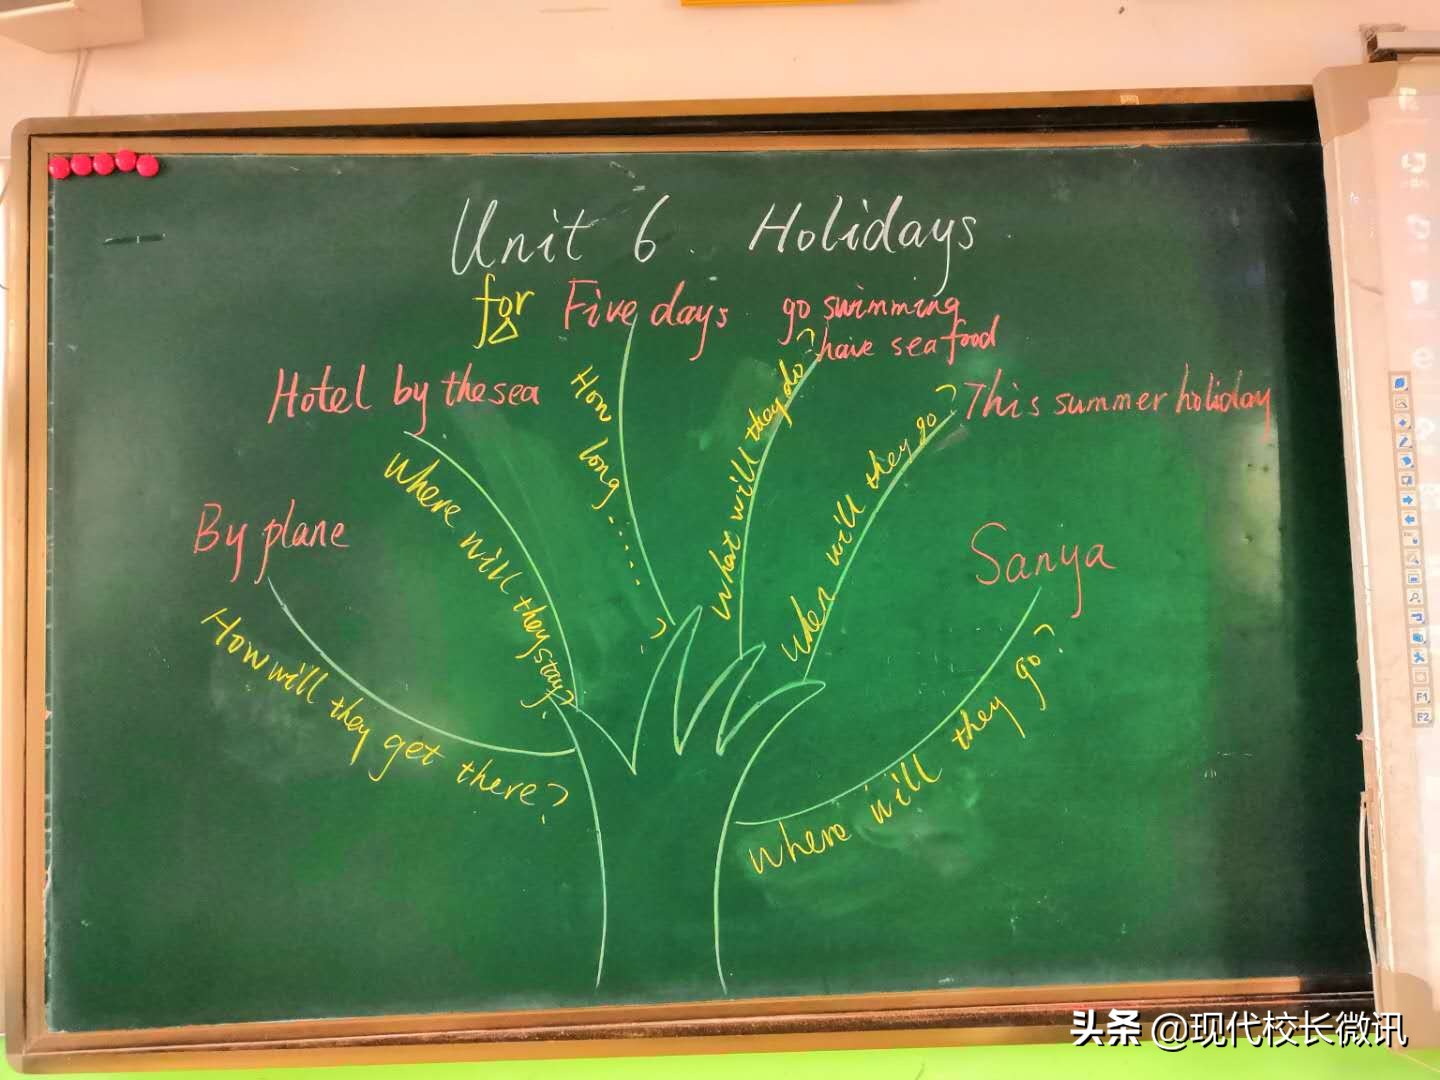 Unit 6 Holidays
for Five days
go swimming
have seafood
Hotel by the sea
This summer holiday
By plane
Sanya
How will they get there?
Where will they stay?
How long......?
What will they do?
When will they go?
Where will they go?
F1
F2
头条 @现代校长微讯